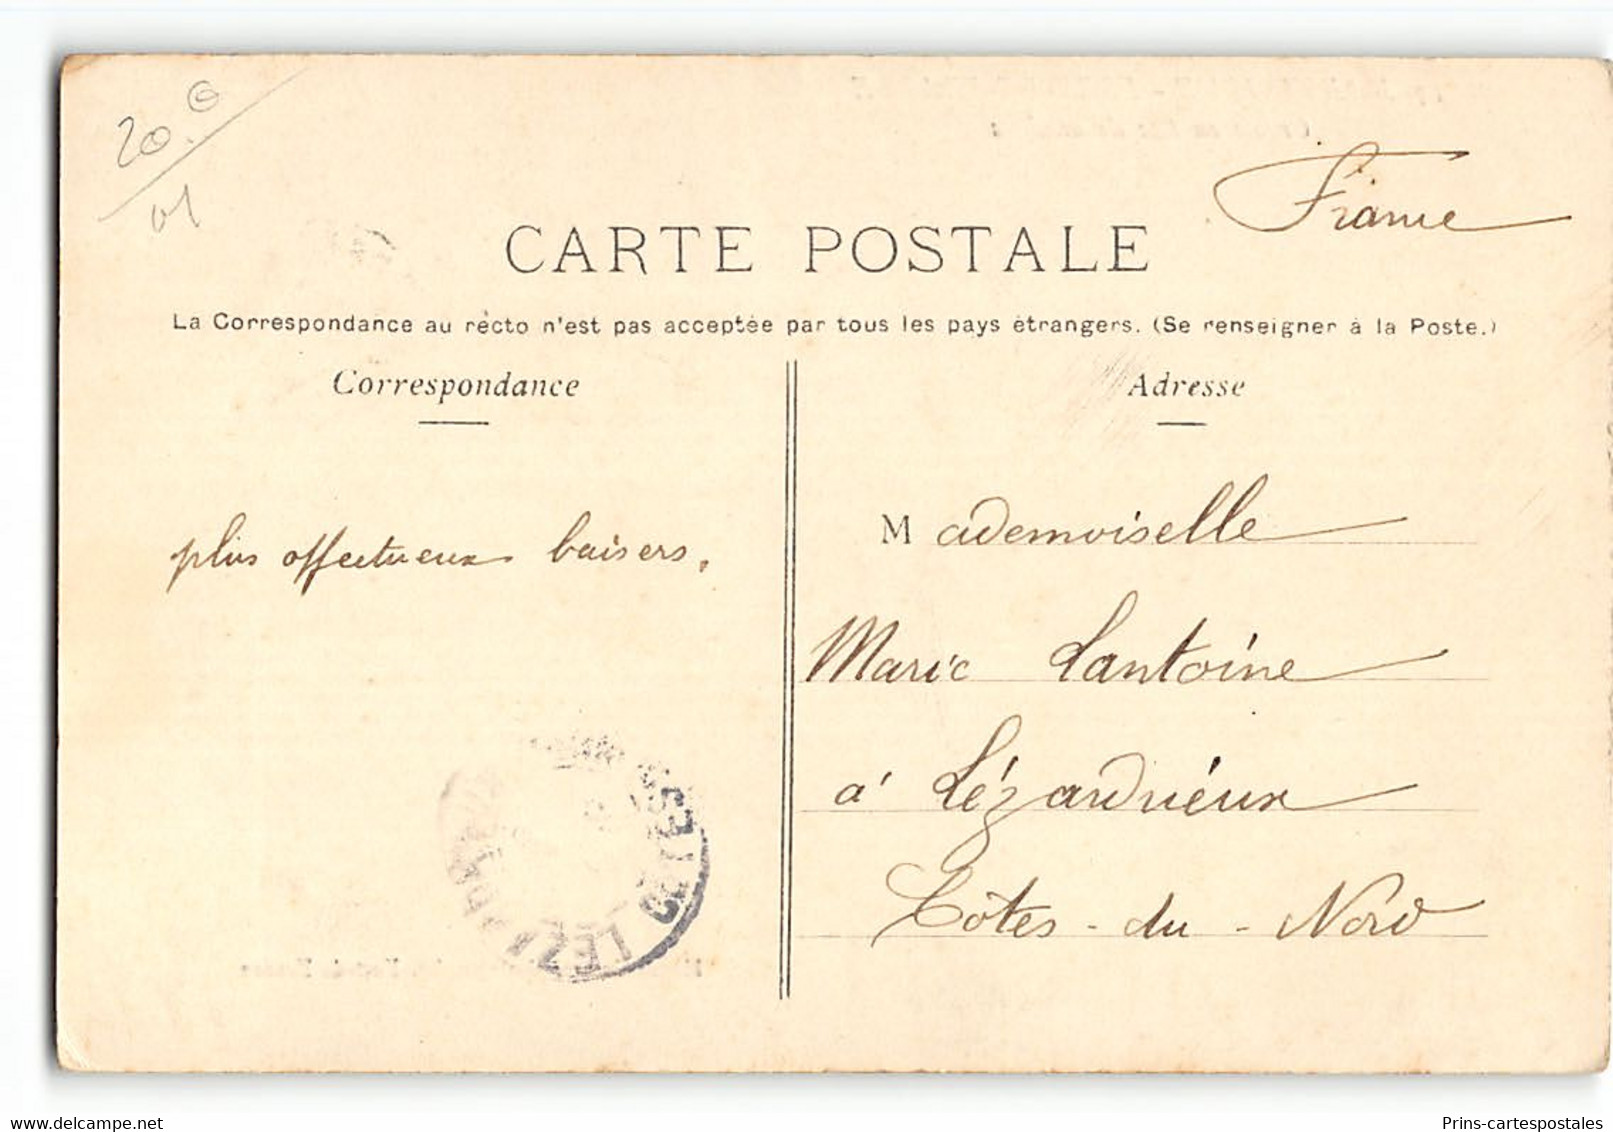 20.0
01
France
CARTE POSTALE
La Correspondance au récto n'est pas acceptée par tous les pays étrangers. (Se renseigner à la Poste.)
Correspondance
plus affectueux baisers.
Adresse
Mademoiselle
Marie Lantoine
à Lézardrieux
Côtes-du-Nord
LEZ
delcampe.net
Prins-cartespostales